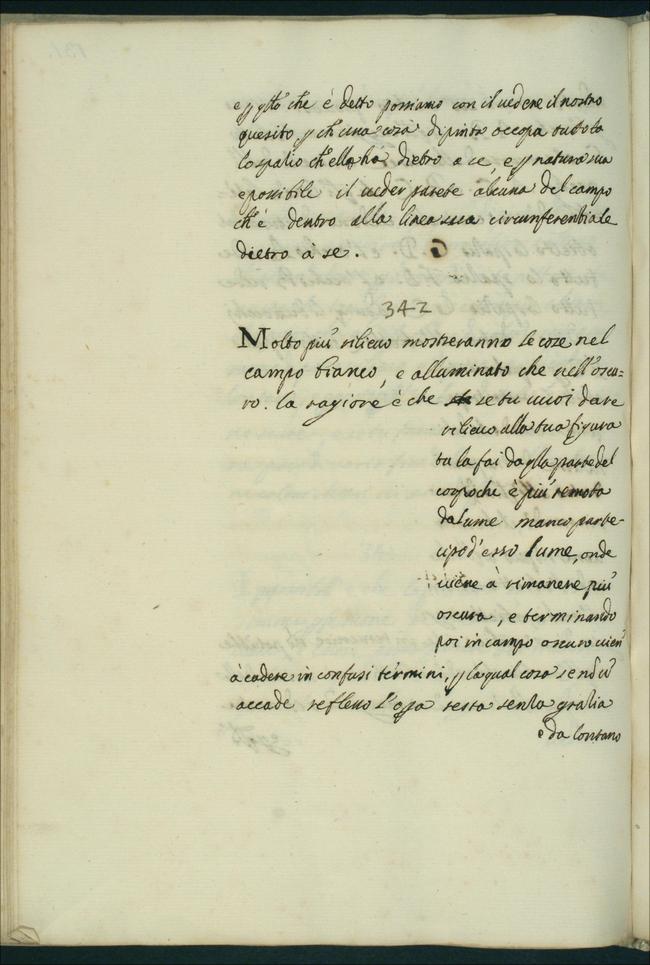 e p q.to che è detto poniamo con il vedere il nostro
quesito, p ch'una cosa dipinta occopa tutto la
lo spatio ch'ella hà dietro a se, e p natura sua
e possibile il veder parete alcuna del campo
ch'è dentro alla linea sua circunferentiale
dietro à se. G
342
Molto più rilievo mostreranno le cose nel
campo bianco, e alluminato che nell'oscu=
ro. la ragione è che se tu vuoi dare
rilievo alla tua figura
tu la fai da q.lla parte del
corpo che è più remota
da lume manco parte-
cipo d'esso lume, onde
viene à rimanere più
oscura, e terminando
poi in campo oscuro vien
à cadere in confusi termini, p la qual cosa se no u
accade reflesso l'opa resta senza gratia
e da lontano